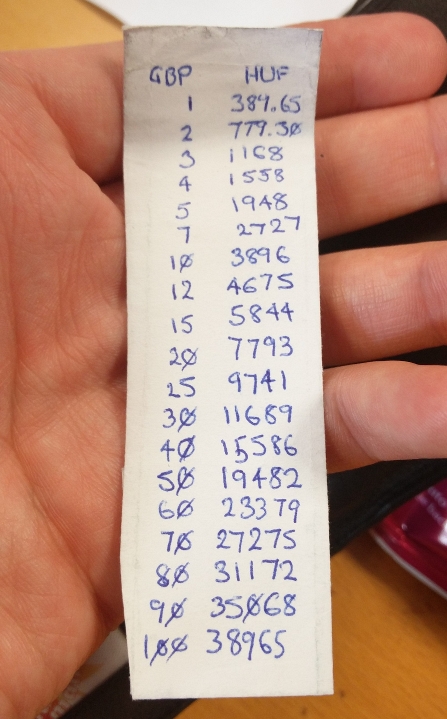 GBP HUF
1 389.65
2 779.30
3 1168
4 1558
5 1948
7 2727
10 3896
12 4675
15 5844
20 7793
25 9741
30 11689
40 15586
50 19482
60 23379
70 27275
80 31172
90 35068
100 38965